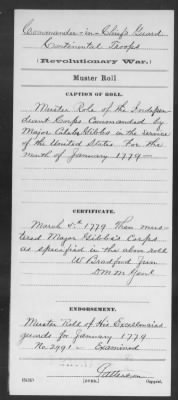 Commander-in-Chief's Guard
Continental Troops
(Revolutionary War.)
Muster Roll
CAPTION OF ROLL.
Muster Role of the Indepen
deant Corps Commanded by
Major Caleb Gibbs in the service
of the United States For the
month of January 1779—
CERTIFICATE.
March 5th 1779 Then mus-
tered Major Gibbs's Corps
as specified in the above roll
W Bradford Jun
D M M Genl.
ENDORSEMENT.
Muster Roll of His Excellencies
guards for January 1779
No. 2991 — Examined
Copyist.